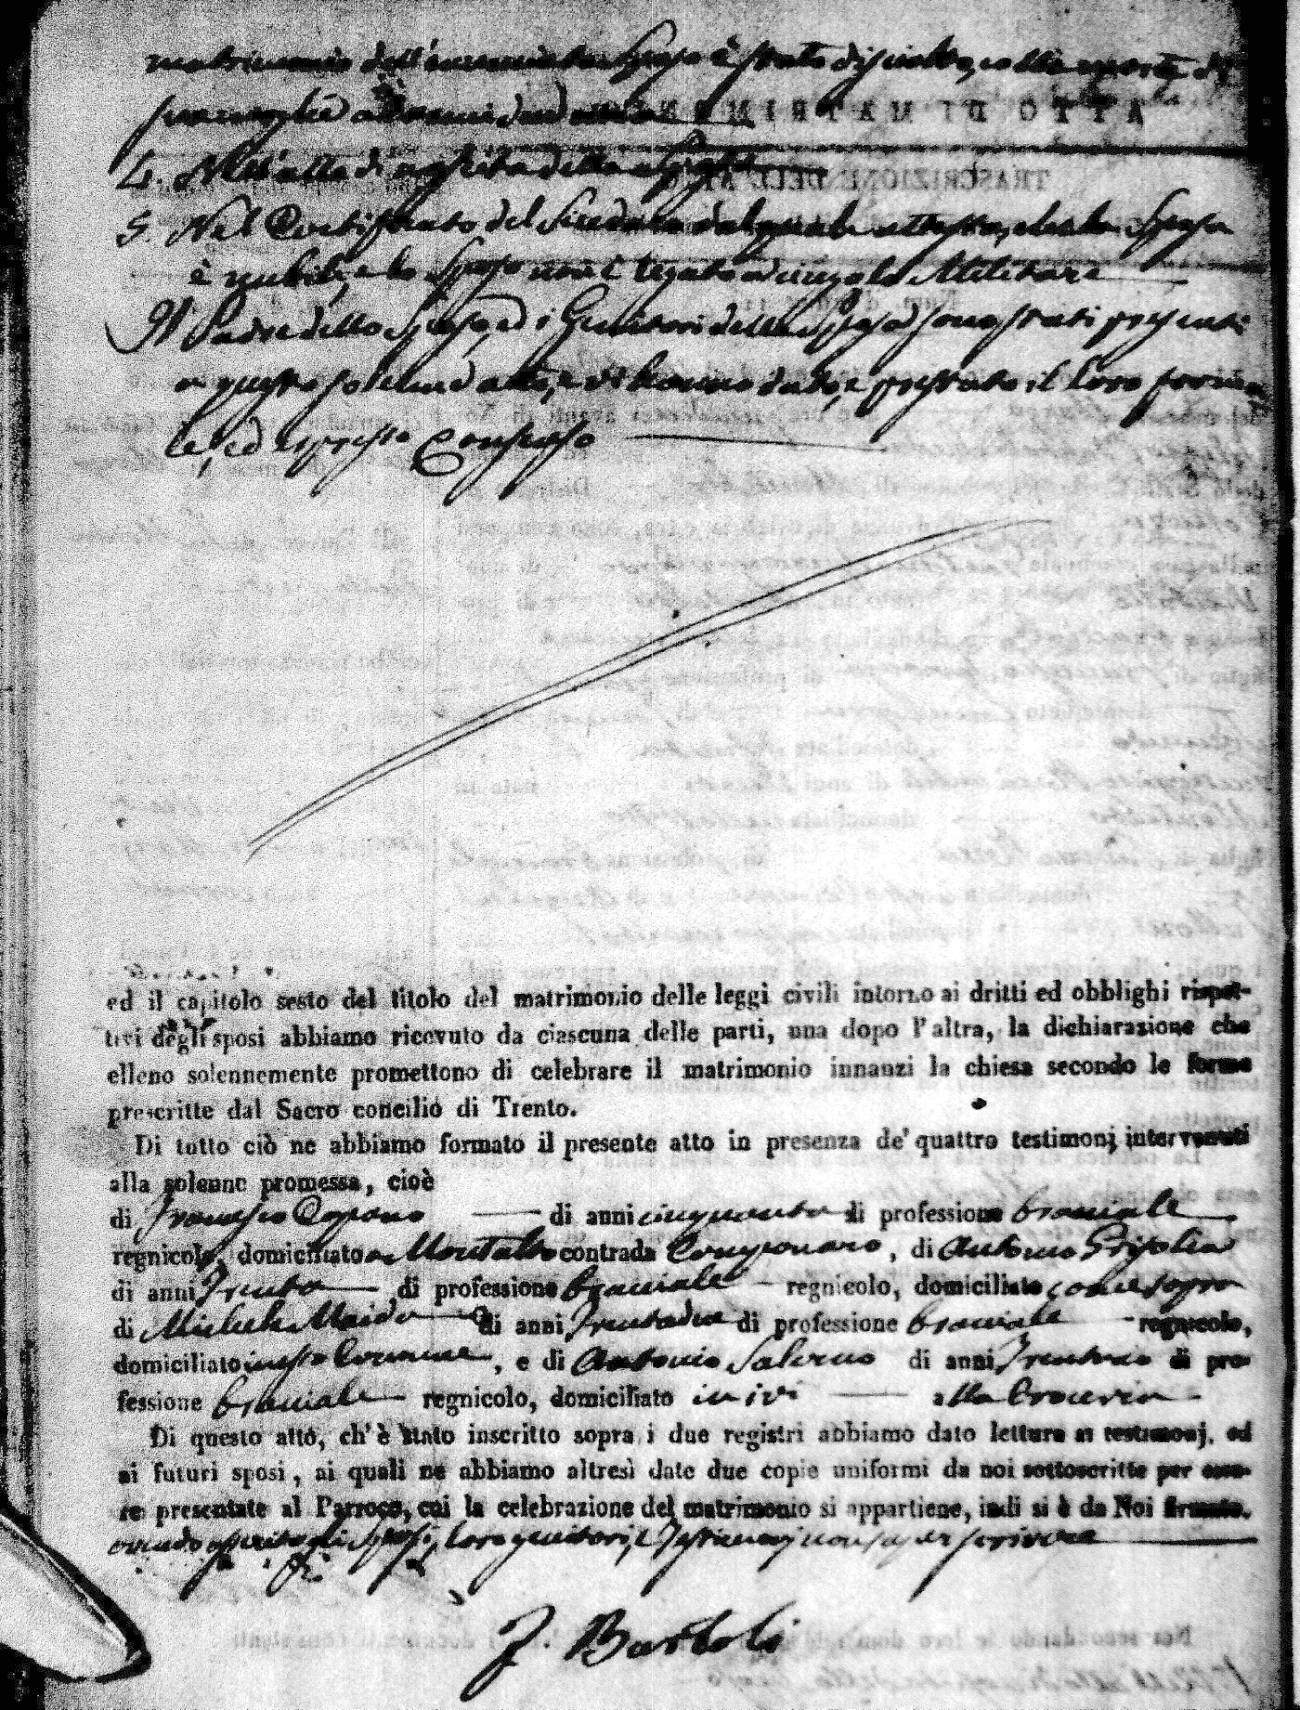 matrimonio dell'enunciato Sposo è stato disciolto, colla morte di
sua moglie
4. Nell'atto di nascita della Sposa
5. Nel Certificato del Sindaco dal quale attesta, che la Sposa
è nubile, e lo Sposo non è legato a cingolo Militare
Il Padre dello Sposo, ed i Genitori della Sposa sono stati presenti
a questo solenne atto, e vi hanno dato, e prestato il loro forma
le, ed espresso Consenso
ed il capitolo sesto del titolo del matrimonio delle leggi civili intorno ai dritti ed obblighi rispet-
tivi degli sposi abbiamo ricevuto da ciascuna delle parti, una dopo l'altra, la dichiarazione che
elleno solennemente promettono di celebrare il matrimonio innanzi la chiesa secondo le forme
prescritte dal Sacro concilio di Trento.
Di tutto ciò ne abbiamo formato il presente atto in presenza de' quattro testimonj intervenuti
alla solenne promessa, cioè
di Francesco di anni cinquanta di professione bracciale
regnicolo, domiciliato a Montalto contrada, di Antonio Grisolia
di anni Trenta di professione bracciale regnicolo, domiciliato come sopra
di Michele Maida di anni Trentadue di professione bracciale regnicolo,
domiciliato in Comune, e di Antonio Salerno di anni di pro-
fessione bracciale regnicolo, domiciliato in ivi alla
Di questo atto, ch'è stato inscritto sopra i due registri abbiamo dato lettura ai testimonj, ed
ai futuri sposi, ai quali ne abbiamo altresì date due copie uniformi da noi sottoscritte per esse-
re presentate al Parroco, cui la celebrazione del matrimonio si appartiene, indi si è da Noi firmato.
avendo asserito gli Sposi, loro genitori, e Testimonj non saper scrivere
F Bartoli